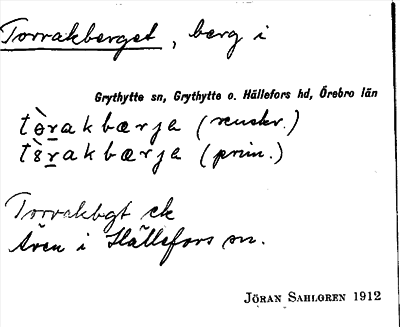 Torrakberget, berg i
Grythytte sn, Grythytte o. Hällefors hd, Örebro län
tòrakbærja (renskr.)
tòrakbærja (prim.)
Torrakbgt ek
Även i Hällefors sn.
JÖRAN SAHLGREN 1912